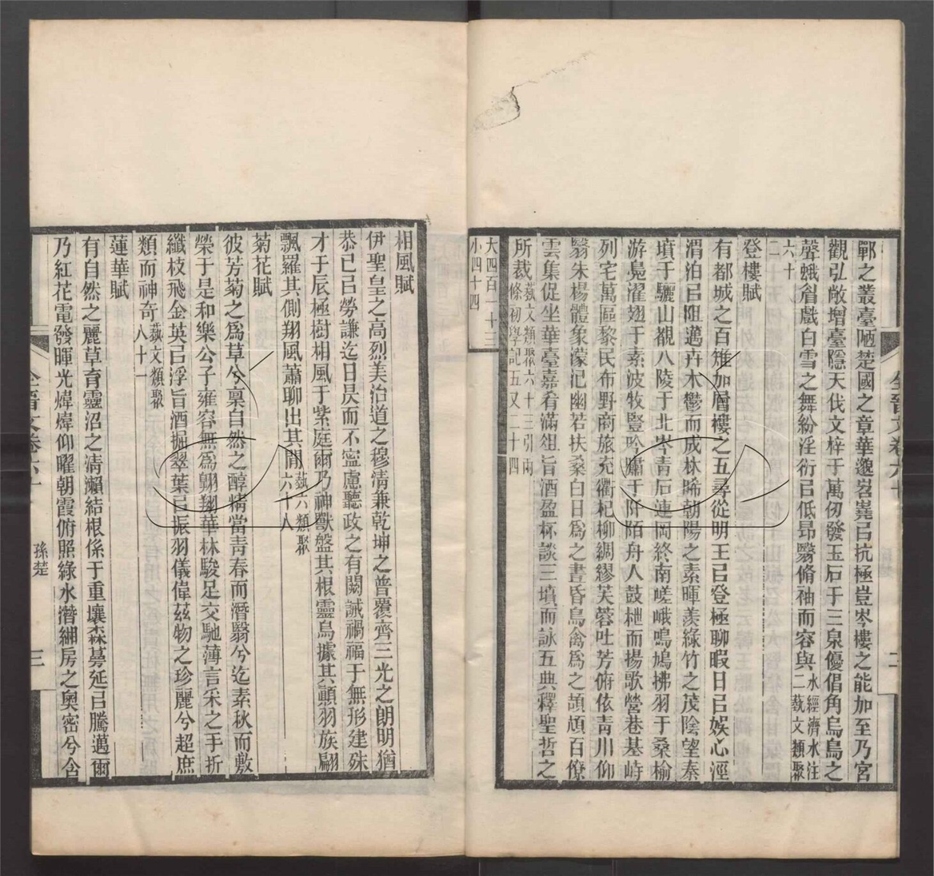 鄲之叢臺陋楚國之章華邈岧嶤㠯抗極豈岑樓之能加至乃宮
觀弘敞增臺隱天伐文梓于萬仞發玉石于三泉優倡角烏鳥之
聲蛾眉戲白雪之舞紛淫衍㠯低昂翳脩袖而容與水經濟水注二蓺文類聚
六十二
登樓賦
有都城之百雉加層樓之五尋從明王㠯登極聊暇日㠯娛心涇
渭泊㠯阻邁卉木鬱而成林晞朝陽之素暉羨綠竹之茂陰望秦
墳于驪山覩八陵于北岑青石連岡終南嵯峨鳴鳩拂羽于桑榆
游鳧濯翅于素波牧豎吟嘯于阡陌舟人鼓枻而揚歌營巷基峙
列宅萬區黎民布野商旅充衢杞柳綢繆芙蓉吐芳俯依青川仰
翳朱楊體象濛汜幽若扶桑白日爲之晝昏鳥禽爲之頡頏百僚
雲集促坐華臺嘉肴滿俎旨酒盈杯談三墳而詠五典釋聖哲之
所裁蓺文類聚六十三引兩條初學記五又二十四
大四百一十三
小四十四
全晉文卷六十
二
相風賦
伊聖皇之高烈美治道之穆清兼乾坤之普覆齊三光之朗明猶
恭己㠯勞謙迄日昃而不寍慮聽政之有闕誡禍福于無形建殊
才于辰極樹相風于紫庭爾乃神獸盤其根靈烏據其顛羽族翩
飄羅其側翔風蕭聊出其閒蓺文類聚六十八
菊花賦
彼芳菊之爲草兮稟自然之醇精當青春而潛翳兮迄素秋而敷
榮于是和樂公子雍容無爲翱翔華林駿足交馳薄言采之手折
纖枝飛金英㠯浮旨酒掘翠葉㠯振羽儀偉茲物之珍麗兮超庶
類而神奇蓺文類聚八十一
蓮華賦
有自然之麗草育靈沼之清瀨結根係于重壤森蔓延㠯騰邁爾
乃紅花電發暉光煒煒仰曜朝霞俯照綠水潛緗房之奧密兮含
全晉文卷六十
孫楚
三